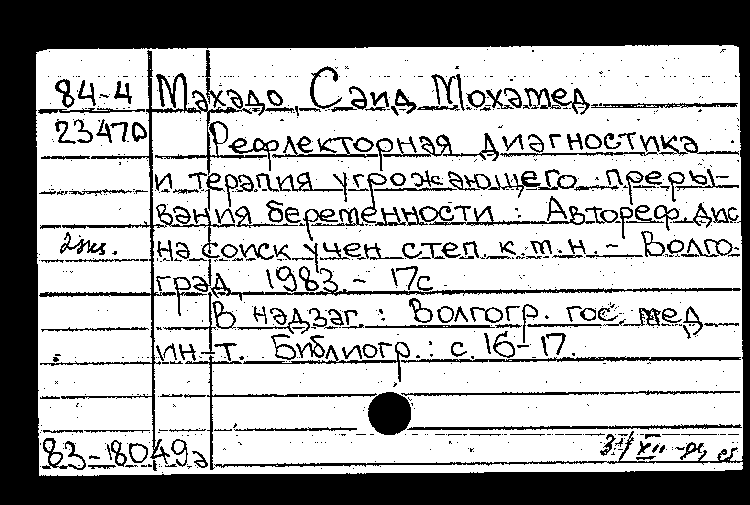 84-4 Махадо, Саид Мохамед
23470 Рефлекторная диагностика
и терапия угрожающего преры-
вания беременности : Автореф. дис
2 экз. на соиск учен степ. к.м.н. - Волго-
град, 1983. - 17с
В надзаг. : Волгогр. гос. мед
ин-т. Библиогр.: с. 16-17.
83-18049а